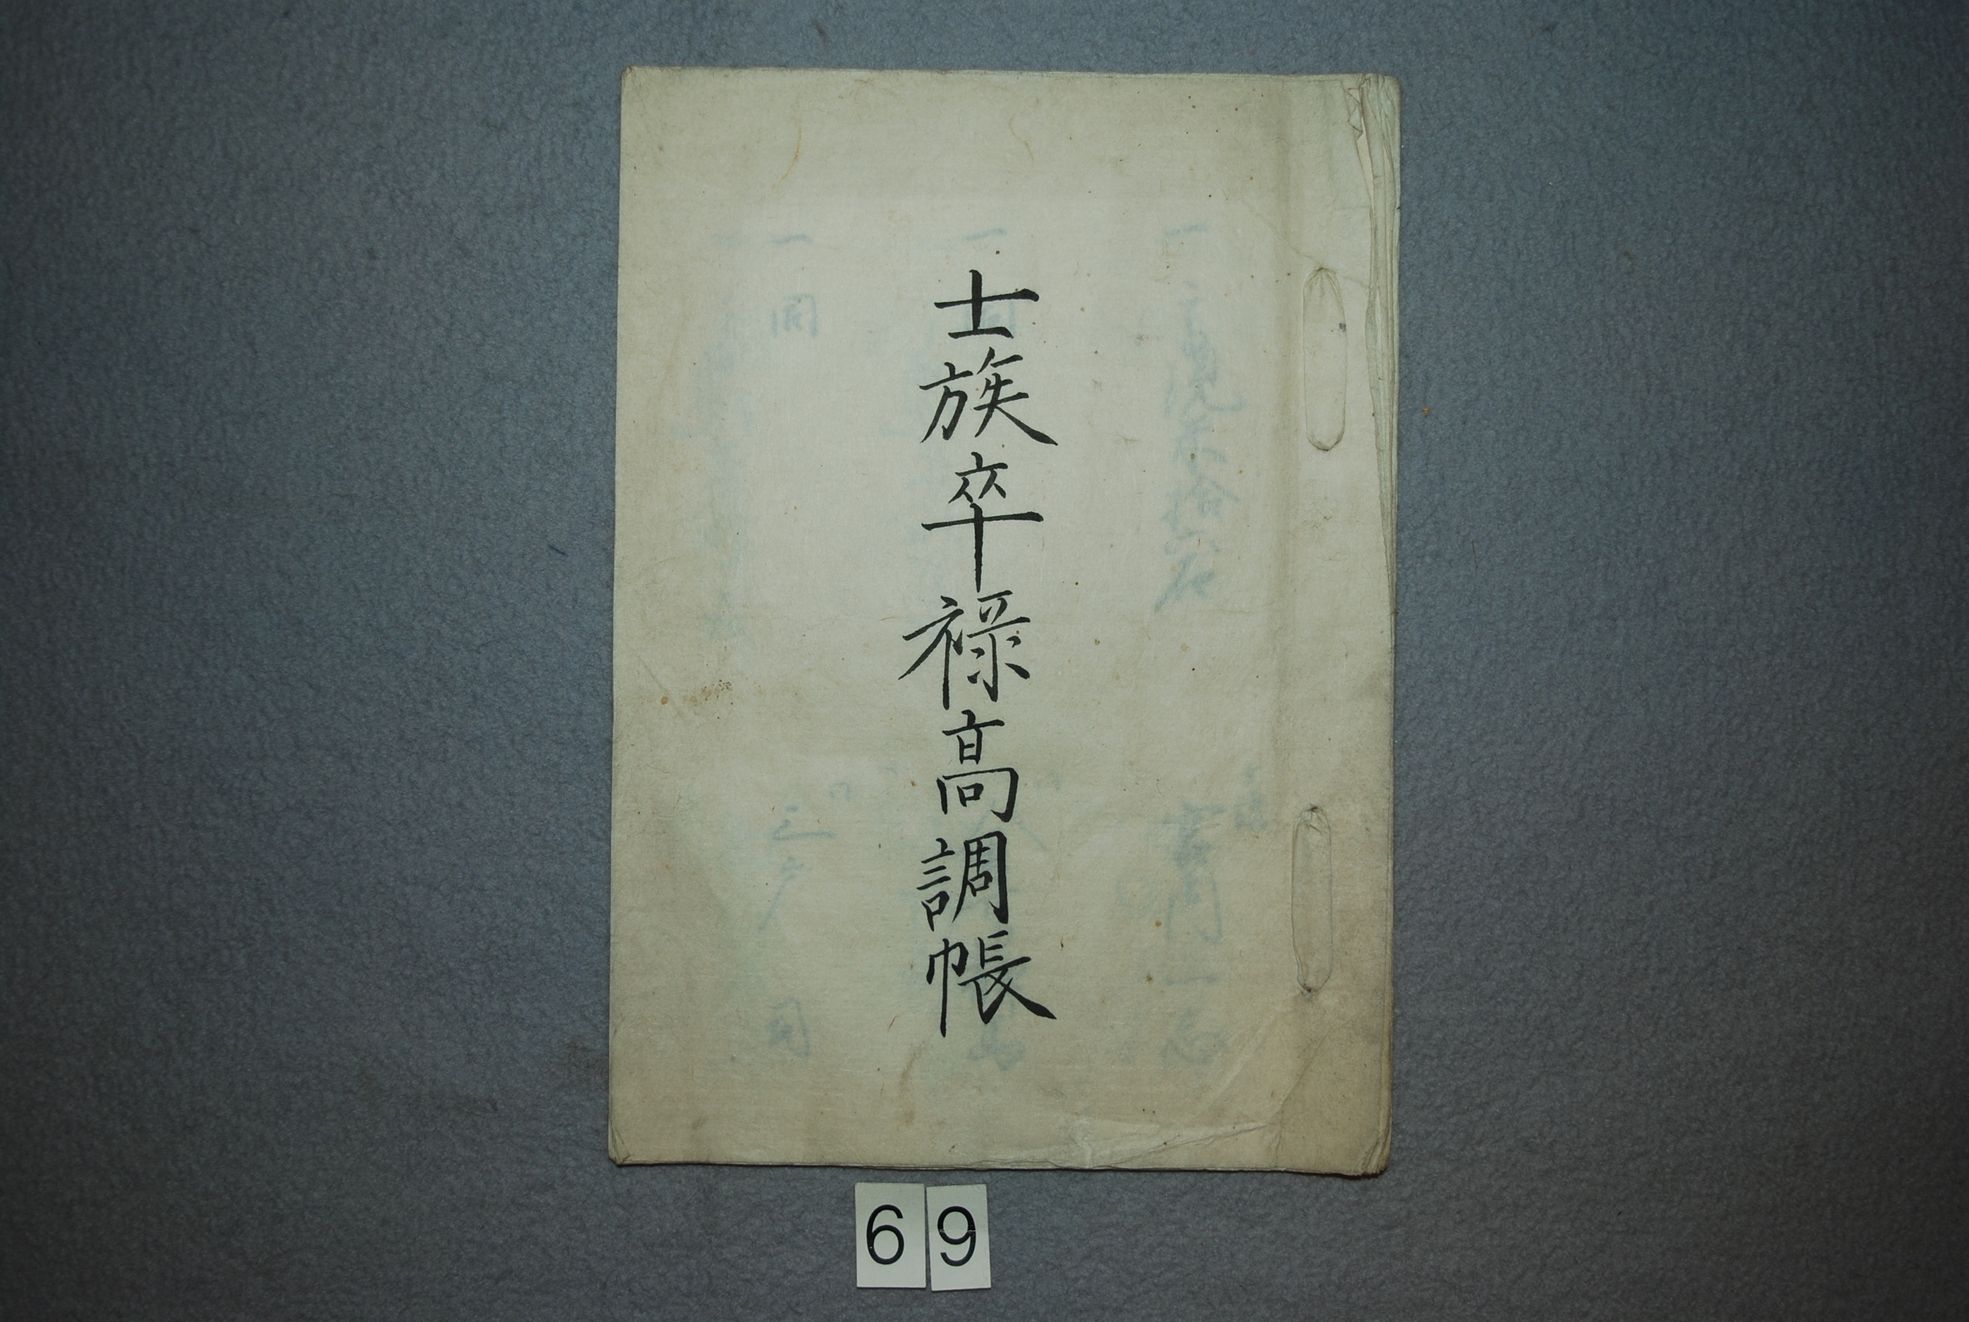 士族卒禄高調帳
69